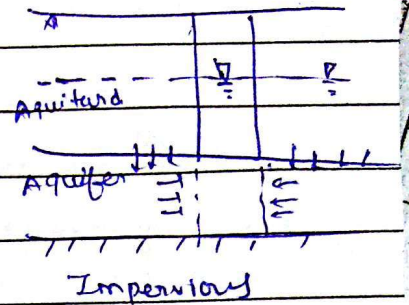 Aquitard
Aquifer
Impervious